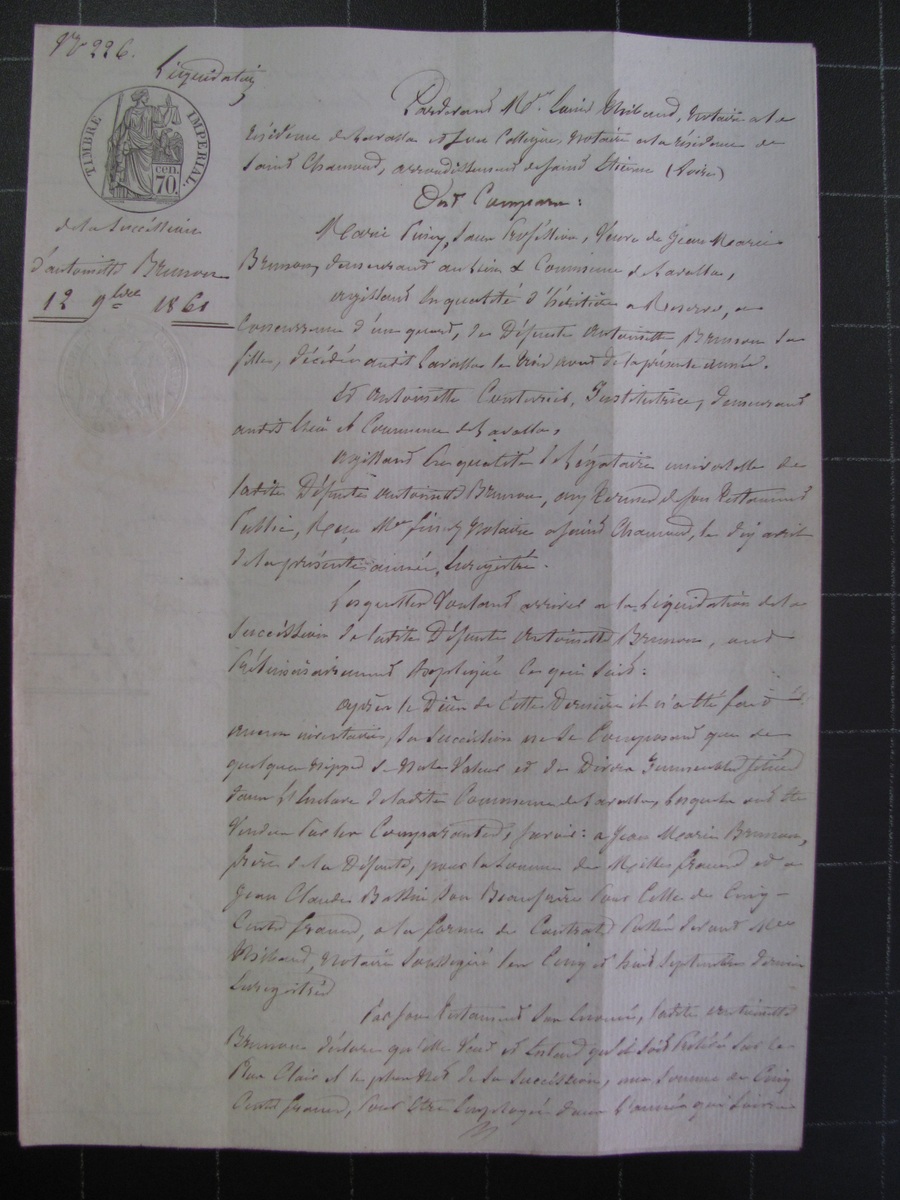 N° 226.
Liquidation
TIMBRE IMPERIAL
70 cen.
de la Succéssion
d'antoinette Brunon
12 9bre 1861
Pardevant Me Louis Thibaud, Notaire a la
résidence de Lavalla et Son Collègue, Notaire a la résidence de
Saint Chamond, arrondissement de Saint Etienne (Loire)
Ont Comparu:
Marie Sans Proféssion, Veuve de Jean Marie
Brunon, demeurant au lieu & Commune de Lavalla,
agissant En qualité d'héritière a Réserve, a
Concurrence d'un quart, de Défunte Antoinette Brunon Sa
fille, décédée audit Lavalla le août de la présente année.
Et Antoinette Institutrice, demeurant
audit lieu et Commune de Lavalla,
agissant En qualité de Légataire universelle de
ladite Défunte Antoinette Brunon, aux termes de Son testament
Public, Reçu Me Notaire a Saint Chamond, le dix avril
de la présente année, Enregistré.
Lesquelles Voulant arriver a la Liquidation de la
Succéssion de ladite Défunte Antoinette Brunon, ont
Préliminairement Expliqué Ce qui Suit:
après le Décès de Cette Dernière il n'a été fait
aucun inventaire, Sa Succéssion ne Se Composant que de
quelques nippes de Nulle Valeur et de Divers Immeubles Situés
dans l'Enclave de ladite Commune de Lavalla, Lesquels ont été
Vendus Par les Comparantes, Savoir: a Jean Marie Brunon,
frère de la Défunte, pour la Somme de Mille francs et a
Jean Claude Son Beaufrère Pour Celle de Cinq
Cents francs, a la forme de Contrats Passés devant Me
Thibaud, Notaire Soussigné les Cinq et huit Septembre dernier
Enregistrés
Par Son testament Sus Enoncé, ladite Antoinette
Brunon déclare qu'elle Veut et Entend qu'il Soit Prélevé Sur le
Plus Clair et le plus Net de Sa Succéssion, une Somme de Cinq
Cents francs, Pour Etre Employée dans l'année qui Suivra